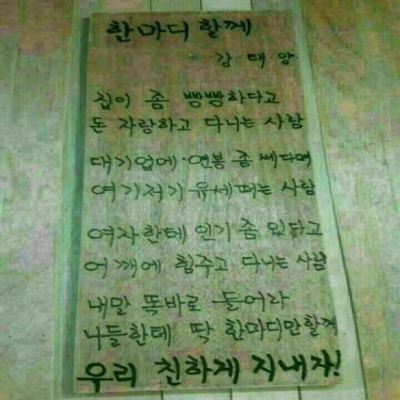 한마디 할께
강·태·양
집이 좀 빵빵하다고
돈 자랑하고 다니는 사람
대기업에·연봉 좀 쎄다며
여기저기 유세떠는 사람
여자한테 인기 좀 있다고
어깨에 힘주고 다니는 사람
내말 똑바로 들어라
니들한테 딱 한마디만할께
우리 친하게 지내자!